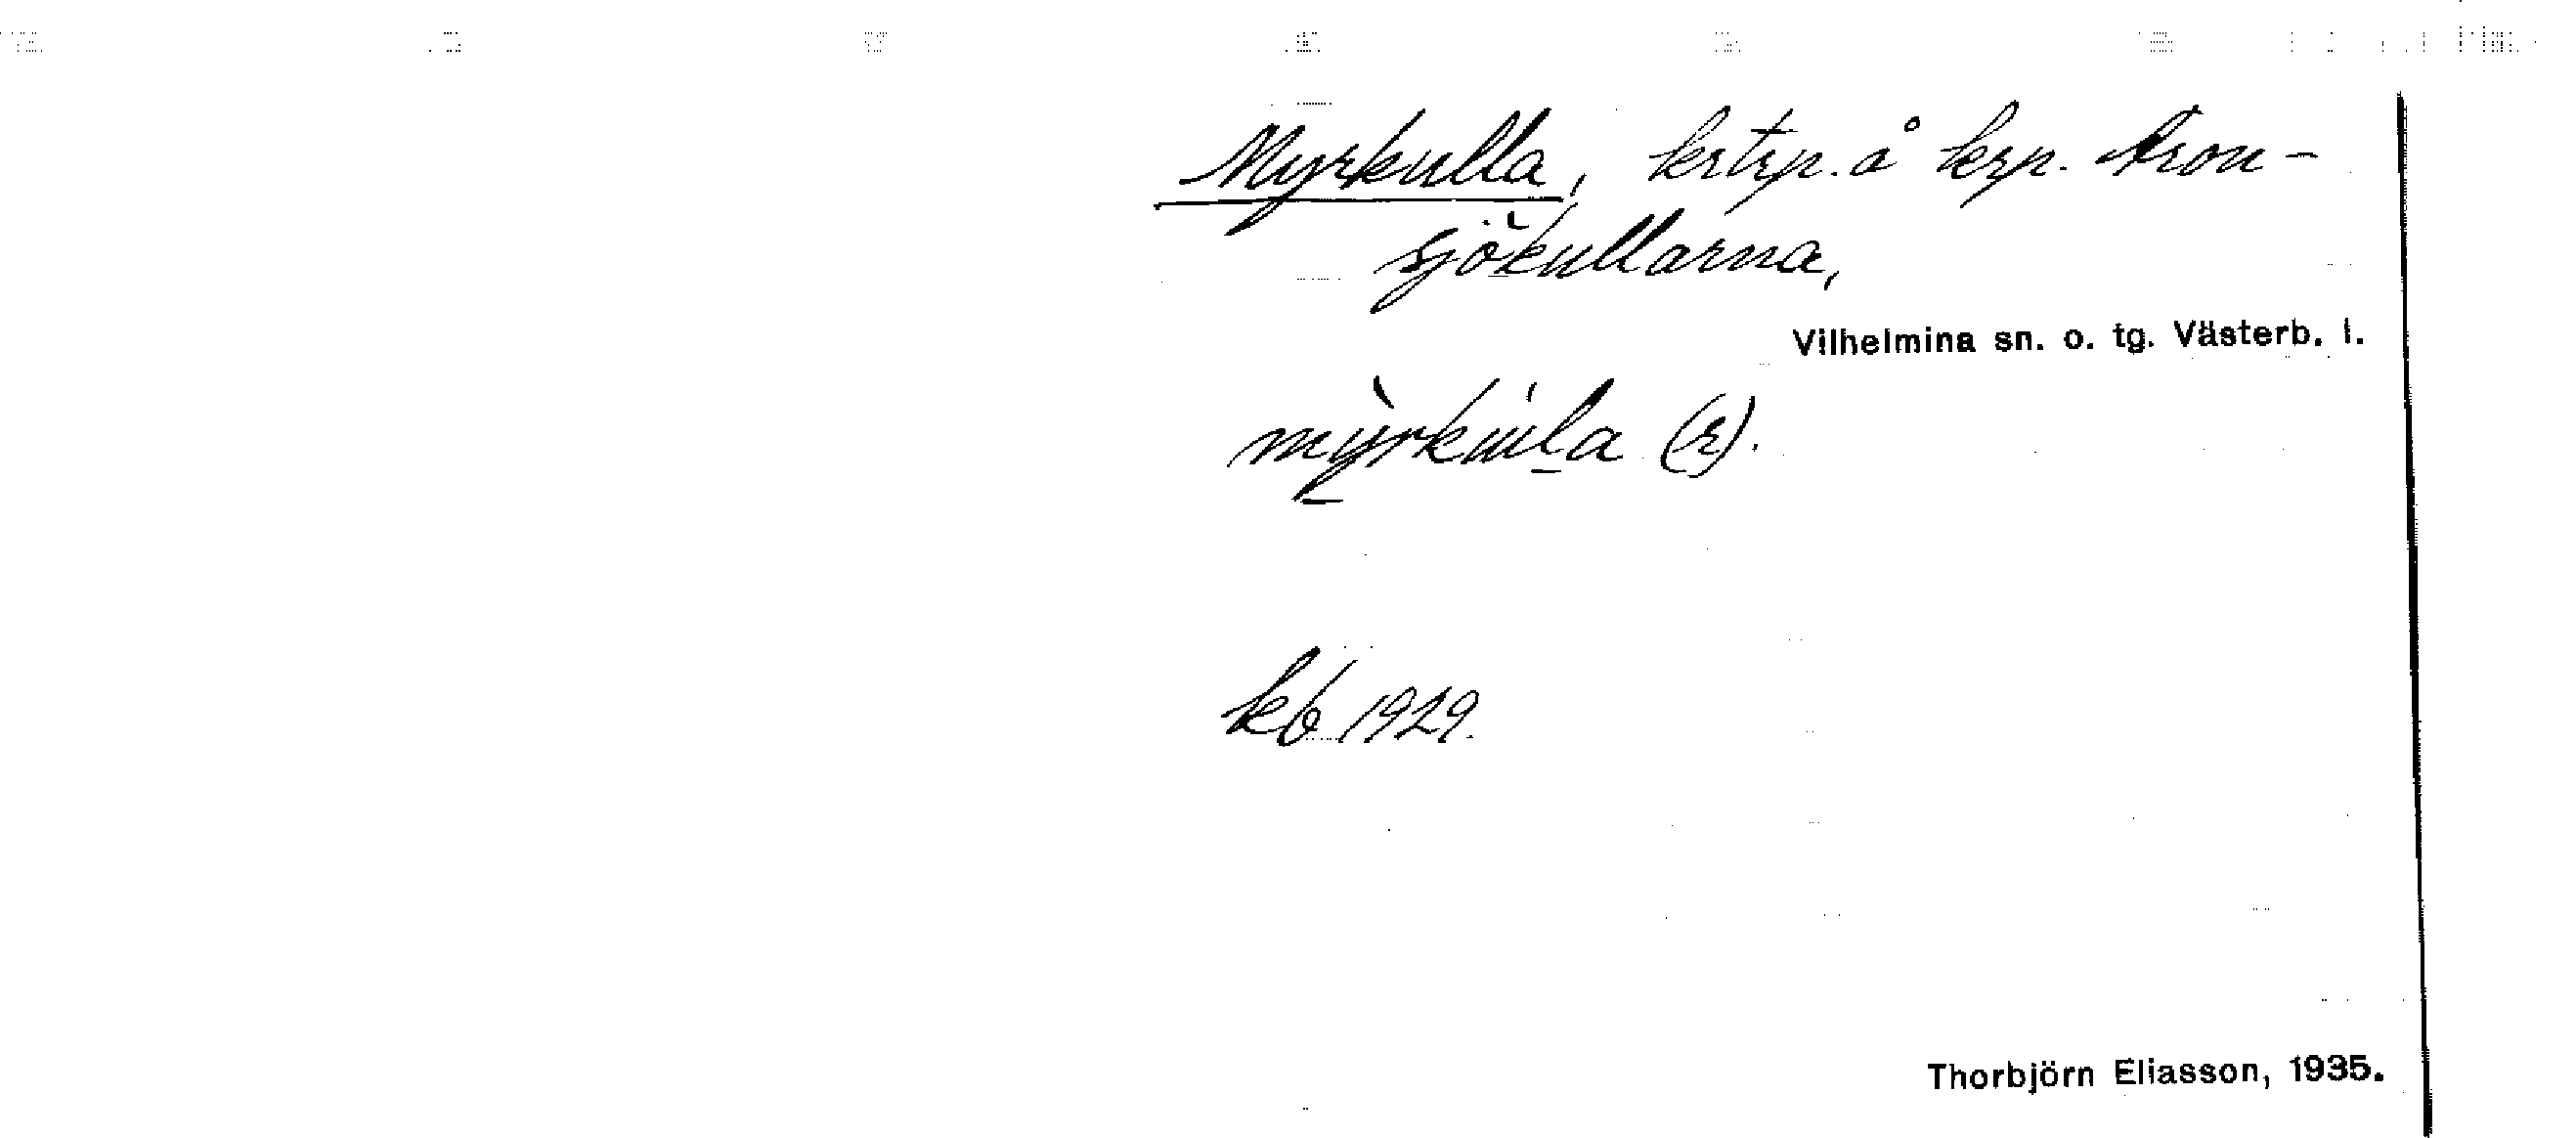 Myrkulla, krtrp. å krp. Aron-
sjökullarna,
Vilhelmina sn. o. tg. Västerb. l.
(r).
kb 1929.
Thorbjörn Eliasson, 1935.